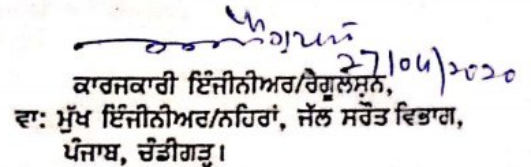 27/04/2020
ਕਾਰਜਕਾਰੀ ਇੰਜੀਨੀਅਰ/ਰੈਗੂਲੇਸ਼ਨ,
ਵਾ: ਮੁੱਖ ਇੰਜੀਨੀਅਰ/ਨਹਿਰਾਂ, ਜੱਲ ਸਰੋਤ ਵਿਭਾਗ,
ਪੰਜਾਬ, ਚੰਡੀਗੜ੍ਹ।